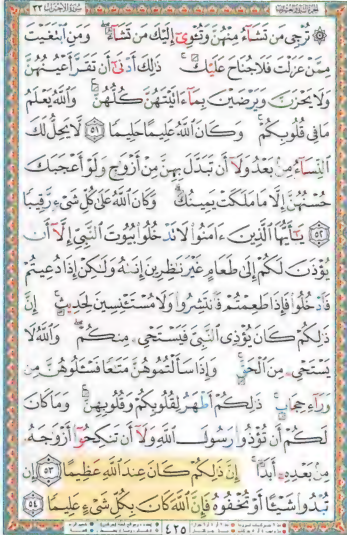 ۞ تُرْجِي مَن تَشَآءُ مِنْهُنَّ وَتُـْٔوِىٓ إِلَيْكَ مَن تَشَآءُ ۖ وَمَنِ ٱبْتَغَيْتَ
مِمَّنْ عَزَلْتَ فَلَا جُنَاحَ عَلَيْكَ ۚ ذَٰلِكَ أَدْنَىٰٓ أَن تَقَرَّ أَعْيُنُهُنَّ
وَلَا يَحْزَنَّ وَيَرْضَيْنَ بِمَآ ءَاتَيْتَهُنَّ كُلُّهُنَّ ۚ وَٱللَّهُ يَعْلَمُ
مَا فِى قُلُوبِكُمْ ۚ وَكَانَ ٱللَّهُ عَلِيمًا حَلِيمًا ٥١ لَّا يَحِلُّ لَكَ
ٱلنِّسَآءُ مِنۢ بَعْدُ وَلَآ أَن تَبَدَّلَ بِهِنَّ مِنْ أَزْوَٰجٍ وَلَوْ أَعْجَبَكَ
حُسْنُهُنَّ إِلَّا مَا مَلَكَتْ يَمِينُكَ ۗ وَكَانَ ٱللَّهُ عَلَىٰ كُلِّ شَىْءٍ رَّقِيبًا
٥٢ يَٰٓأَيُّهَا ٱلَّذِينَ ءَامَنُوا۟ لَا تَدْخُلُوا۟ بُيُوتَ ٱلنَّبِىِّ إِلَّآ أَن
يُؤْذَنَ لَكُمْ إِلَىٰ طَعَامٍ غَيْرَ نَٰظِرِينَ إِنَىٰهُ وَلَٰكِنْ إِذَا دُعِيتُمْ
فَٱدْخُلُوا۟ فَإِذَا طَعِمْتُمْ فَٱنتَشِرُوا۟ وَلَا مُسْتَـْٔنِسِينَ لِحَدِيثٍ ۚ إِنَّ
ذَٰلِكُمْ كَانَ يُؤْذِى ٱلنَّبِىَّ فَيَسْتَحْىِۦ مِنكُمْ ۖ وَٱللَّهُ لَا
يَسْتَحْىِۦ مِنَ ٱلْحَقِّ ۚ وَإِذَا سَأَلْتُمُوهُنَّ مَتَٰعًا فَسْـَٔلُوهُنَّ مِن
وَرَآءِ حِجَابٍ ۚ ذَٰلِكُمْ أَطْهَرُ لِقُلُوبِكُمْ وَقُلُوبِهِنَّ ۚ وَمَا كَانَ
لَكُمْ أَن تُؤْذُوا۟ رَسُولَ ٱللَّهِ وَلَآ أَن تَنكِحُوٓا۟ أَزْوَٰجَهُۥ
مِنۢ بَعْدِهِۦٓ أَبَدًا ۚ إِنَّ ذَٰلِكُمْ كَانَ عِندَ ٱللَّهِ عَظِيمًا ٥٣ إِن
تُبْدُوا۟ شَيْـًٔا أَوْ تُخْفُوهُ فَإِنَّ ٱللَّهَ كَانَ بِكُلِّ شَىْءٍ عَلِيمًا ٥٤
٤٢٥